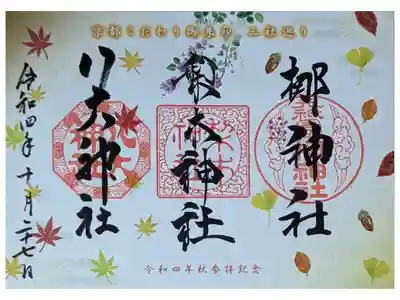 京都こだわり御朱印 三社巡り
梛神社
梨木神社
八大神社
令和四年十月二十七日
令和四年秋参拝記念